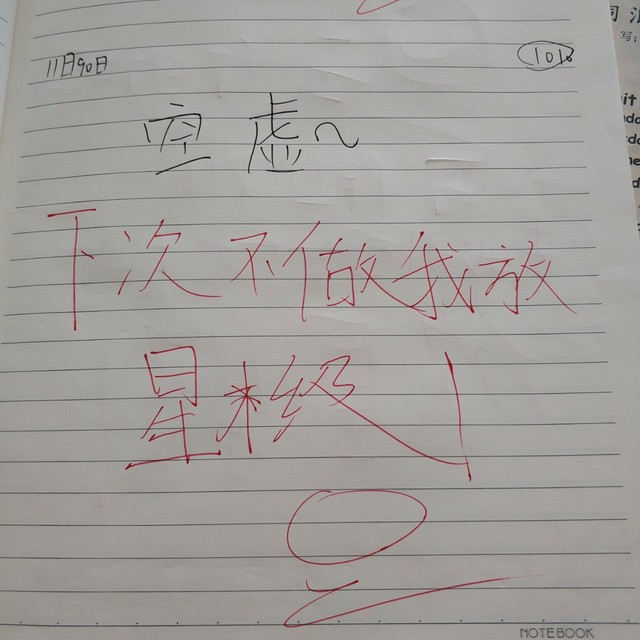 11月90日 101
空虚~
下次不做我放
星米级
NOTEBOOK